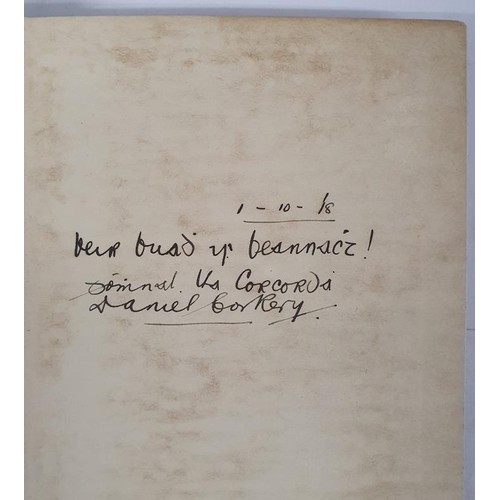 1 - 10 - 18
beir buaḋ is beannaċt!
Dómnal. Ua Corcorḋa
Daniel Corkery.